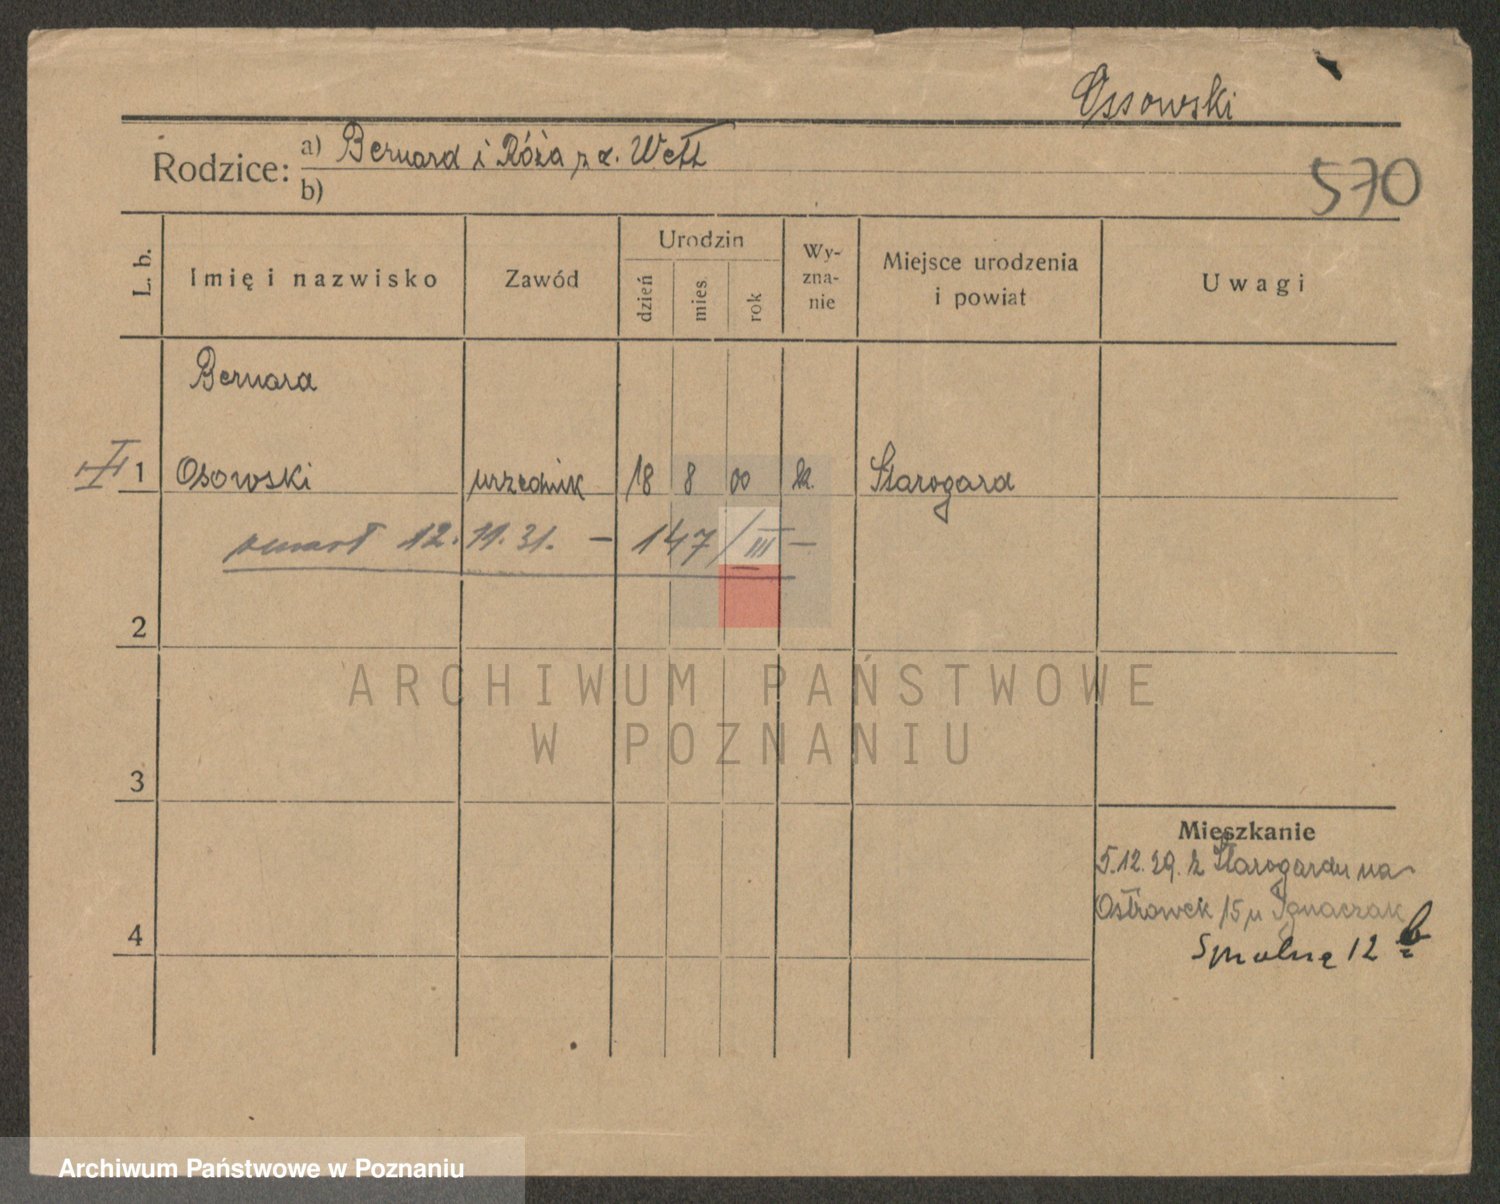 Ossowski
Rodzice: a) Bernard i Róża z d. Wett
b)
570
L. b.
Imię i nazwisko
Zawód
Urodzin
dzień
mies
rok
Wy-
zna-
nie
Miejsce urodzenia
i powiat
Uwagi
Bernard
1 Osowski urzędnik 18 8 00 k. Starogard
zmarł 12.11.31. — 147/III —
2
ARCHIWUM PAŃSTWOWE
W POZNANIU
3
Mieszkanie
5.12.29. z Starogardu na
Ostrówek 15 u Ignaczak
4
12
Archiwum Państwowe w Poznaniu